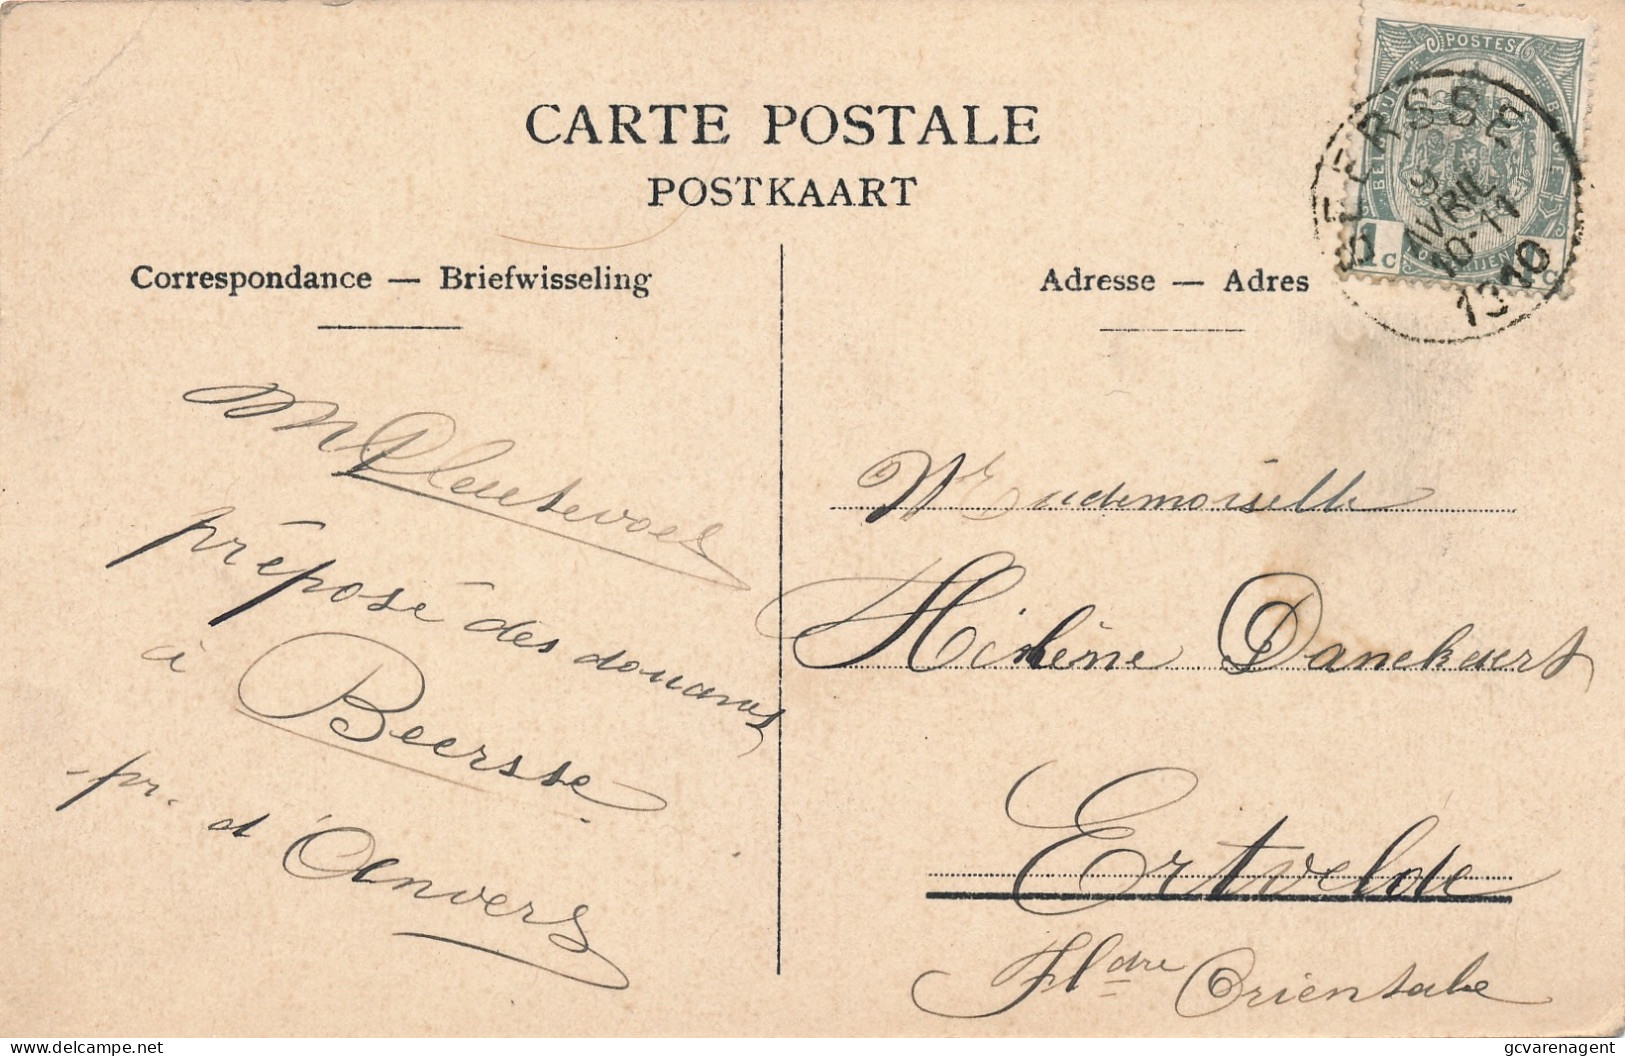 CARTE POSTALE
POSTKAART
Correspondance — Briefwisseling
Adresse — Adres
POSTES
1c
BEERSSE
9
AVRIL
10-11
1910
préposé des douanes
à Beersse
pr. d'Anvers
Mademoiselle
Hélène Danckaert
Ertvelde
Fldre Orientale
delcampe.net
gcvarenagent